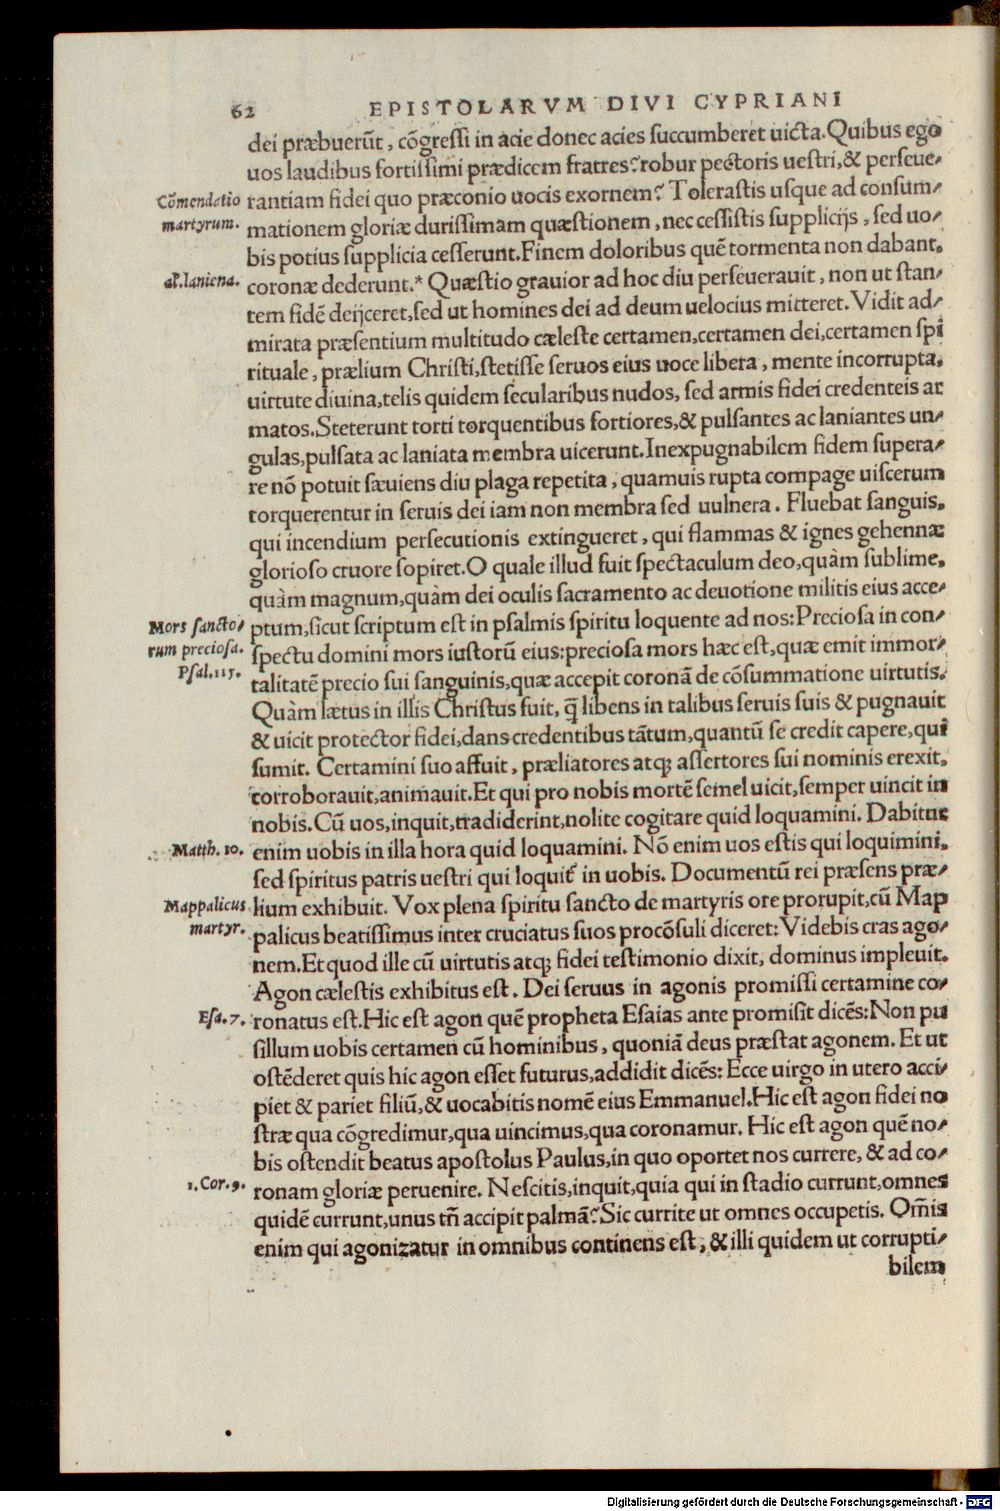 62 EPISTOLARVM DIVI CYPRIANI
dei præbuerūt, cōgressi in acie donec acies succumberet uicta. Quibus ego
uos laudibus fortissimi prædicem fratres? robur pectoris uestri, & perseue-
Cōmendatio
martyrum.
rantiam fidei quo præconio uocis exornem? Tolerastis usque ad consum-
mationem gloriæ durissimam quæstionem, nec cessistis supplicijs, sed uo-
bis potius supplicia cesserunt. Finem doloribus quē tormenta non dabant,
al. laniena.
coronæ dederunt.* Quæstio grauior ad hoc diu perseuerauit, non ut stan-
tem fidē deijceret, sed ut homines dei ad deum uelocius mitteret. Vidit ad-
mirata præsentium multitudo cæleste certamen, certamen dei, certamen spi
rituale, prælium Christi, stetisse seruos eius uoce libera, mente incorrupta,
uirtute diuina, telis quidem secularibus nudos, sed armis fidei credenteis ar
matos. Steterunt torti torquentibus fortiores, & pulsantes ac laniantes un-
gulas, pulsata ac laniata membra uicerunt. Inexpugnabilem fidem supera-
re nō potuit sæuiens diu plaga repetita, quamuis rupta compage uiscerum
torquerentur in seruis dei iam non membra sed uulnera. Fluebat sanguis,
qui incendium persecutionis extingueret, qui flammas & ignes gehennæ
glorioso cruore sopiret. O quale illud fuit spectaculum deo, quàm sublime,
quàm magnum, quàm dei oculis sacramento ac deuotione militis eius acce-
Mors sancto-
rum preciosa.
Psal. 115.
ptum, sicut scriptum est in psalmis spiritu loquente ad nos: Preciosa in con-
spectu domini mors iustorū eius: preciosa mors hæc est, quæ emit immor-
talitatē precio sui sanguinis, quæ accepit coronā de cōsummatione uirtutis.
Quàm lætus in illis Christus fuit, q̄ libens in talibus seruis suis & pugnauit
& uicit protector fidei, dans credentibus tātum, quantū se credit capere, qui
sumit. Certamini suo affuit, præliatores atq; assertores sui nominis erexit,
corroborauit, animauit. Et qui pro nobis mortē semel uicit, semper uincit in
nobis. Cū uos, inquit, tradiderint, nolite cogitare quid loquamini. Dabitur
Matth. 10.
enim uobis in illa hora quid loquamini. Nō enim uos estis qui loquimini,
sed spiritus patris uestri qui loquit᷑ in uobis. Documentū rei præsens præ-
Mappalicus
martyr.
lium exhibuit. Vox plena spiritu sancto de martyris ore prorupit, cū Map
palicus beatissimus inter cruciatus suos procōsuli diceret: Videbis cras ago-
nem. Et quod ille cū uirtutis atq; fidei testimonio dixit, dominus impleuit.
Agon cælestis exhibitus est. Dei seruus in agonis promissi certamine co-
Esa. 7.
ronatus est. Hic est agon quē propheta Esaias ante promisit dicēs: Non pu
sillum uobis certamen cū hominibus, quoniā deus præstat agonem. Et ut
ostēderet quis hic agon esset futurus, addidit dicēs: Ecce uirgo in utero acci-
piet & pariet filiū, & uocabitis nomē eius Emmanuel. Hic est agon fidei no
stræ qua cōgredimur, qua uincimus, qua coronamur. Hic est agon quē no-
bis ostendit beatus apostolus Paulus, in quo oportet nos currere, & ad co-
1. Cor. 9.
ronam gloriæ peruenire. Nescitis, inquit, quia qui in stadio currunt, omnes
quidē currunt, unus tñ accipit palmā? Sic currite ut omnes occupetis. Om̄is
enim qui agonizatur in omnibus continens est, & illi quidem ut corrupti-
bilem
Digitalisierung gefördert durch die Deutsche Forschungsgemeinschaft - DFG